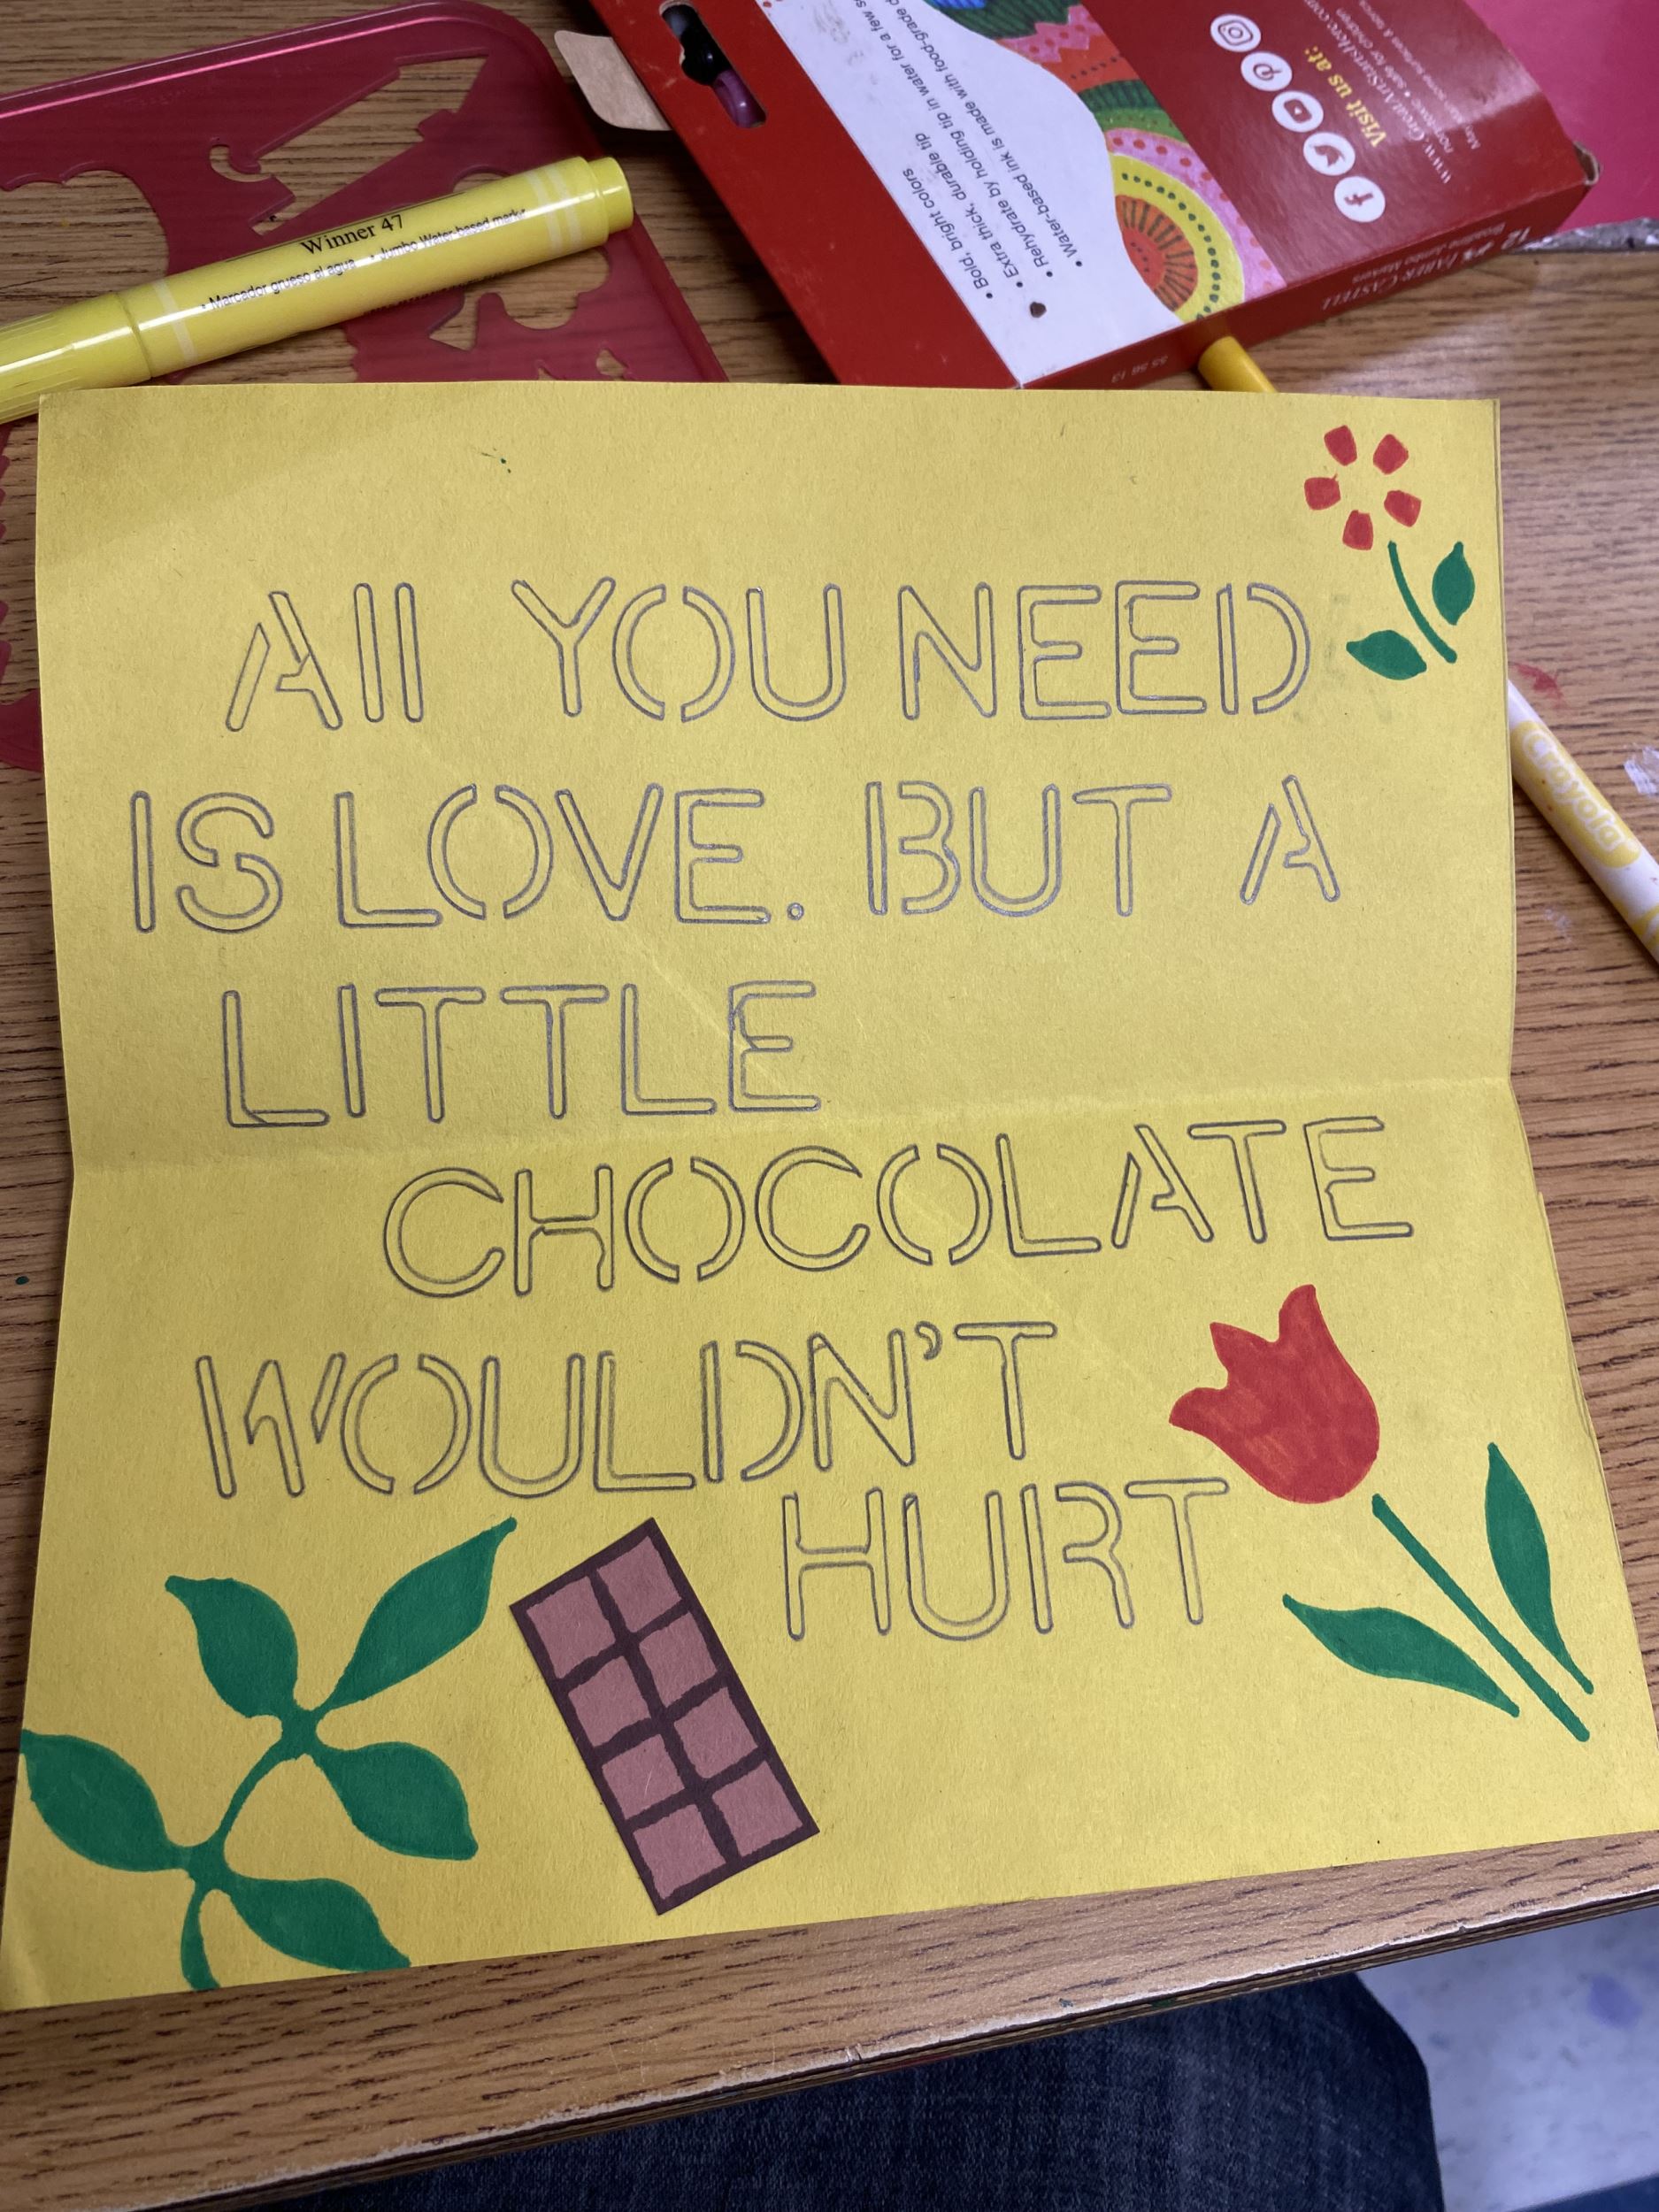 Winner 47
• Marcador grueso al agua • Jumbo Water-based marker
• Bold, bright colors
• Extra thick, durable tip
• Rehydrate by holding tip in water for a few
• Water-based ink is made with food-grade
Visit us at:
FABER-CASTELL
Crayola
All YOU NEED
IS LOVE. BUT A
LITTLE
CHOCOLATE
WOULDN'T
HURT